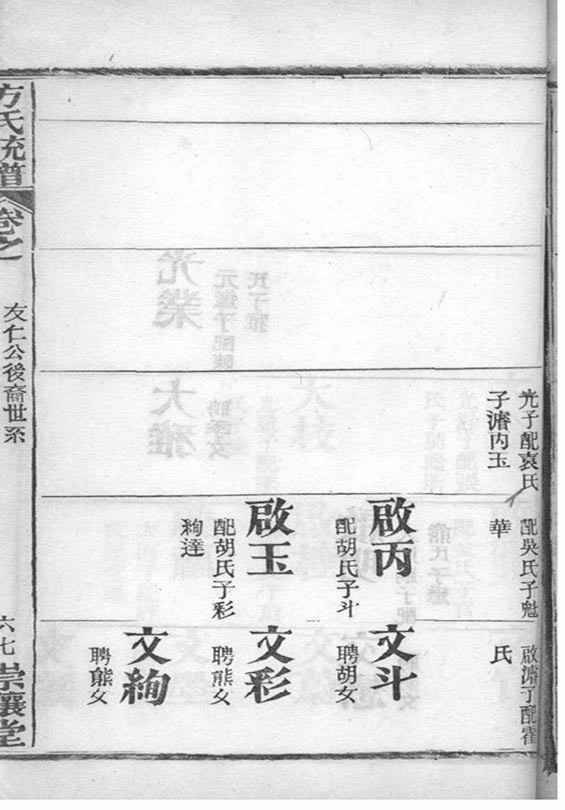 光子配袁氏
子濬丙玉
配吳氏子魁
華
啟濬子配霍
氏
啟丙
配胡氏子斗
啟玉
配胡氏子彩
絢達
文斗
聘胡女
文彩
聘熊女
文絢
聘熊女
方氏統譜
卷之
友仁公後裔世系
六七
崇讓堂